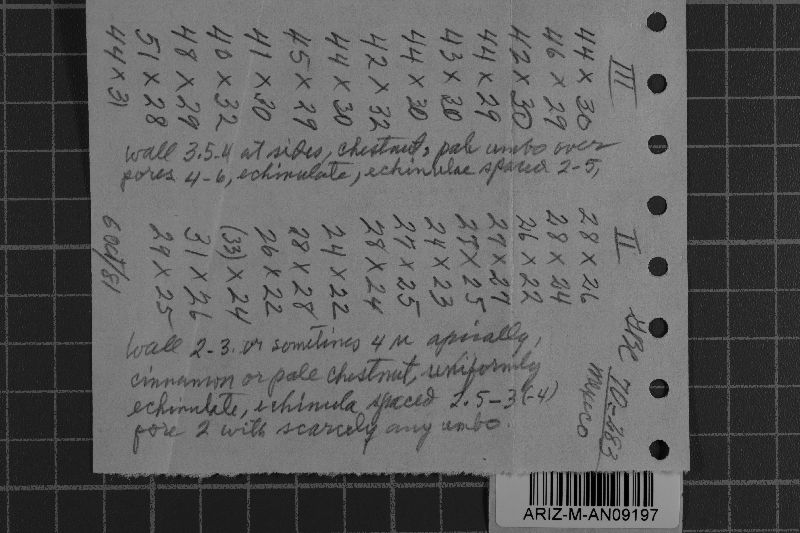 UBC 70-283
Mexico
II
28 x 26
28 x 24
26 x 22
27 x 27
25 x 25
24 x 23
27 x 25
28 x 24
24 x 22
28 x 28
26 x 22
(33) x 24
31 x 26
29 x 25
wall 2-3. or sometimes 4 u apically,
cinnamon or pale chestnut, uniformly
echinulate, echinula spaced 2.5-3(-4)
pore 2 with scarcely any umbo.
6 Oct/81
III
44 x 30
46 x 29
42 x 30
44 x 29
43 x 30
44 x 30
42 x 32
44 x 30
45 x 29
41 x 30
40 x 32
48 x 29
51 x 28
44 x 31
wall 3.5-4 at sides, chestnut, pale umbo over
pores 4-6, echinulate, echinulae spaced 2-5,
ARIZ-M-AN09197